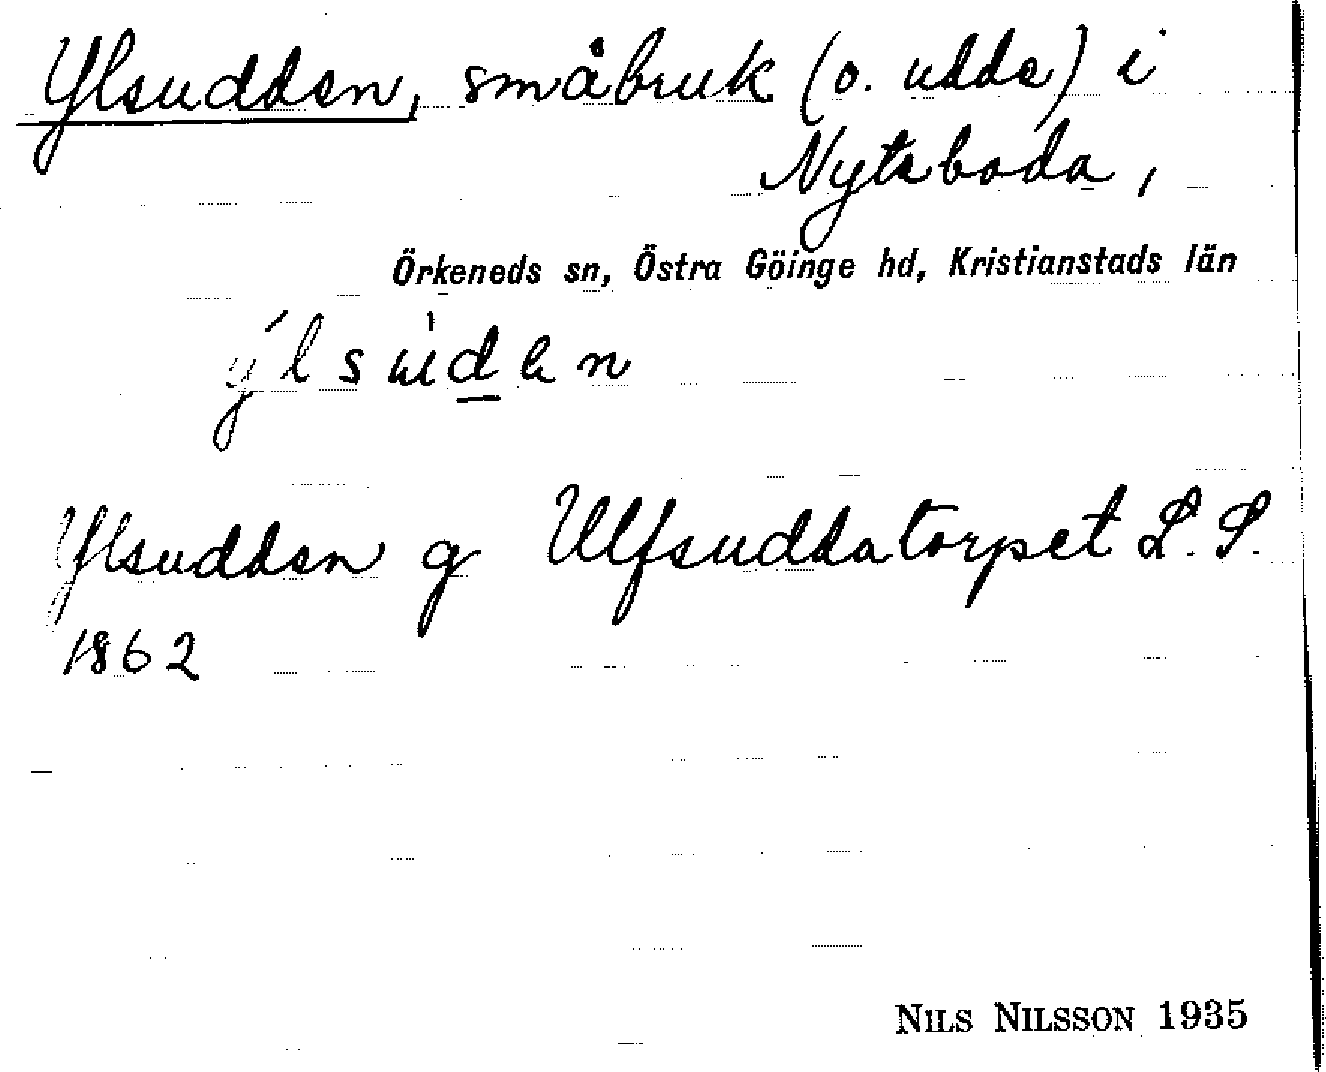 Ylsudden, småbruk (o. udde) i
Nyteboda,
Örkeneds sn, Östra Göinge hd, Kristianstads län
ýlsùden
Ylsudden g Ulfsuddatorpet L. S.
1862
NILS NILSSON 1935